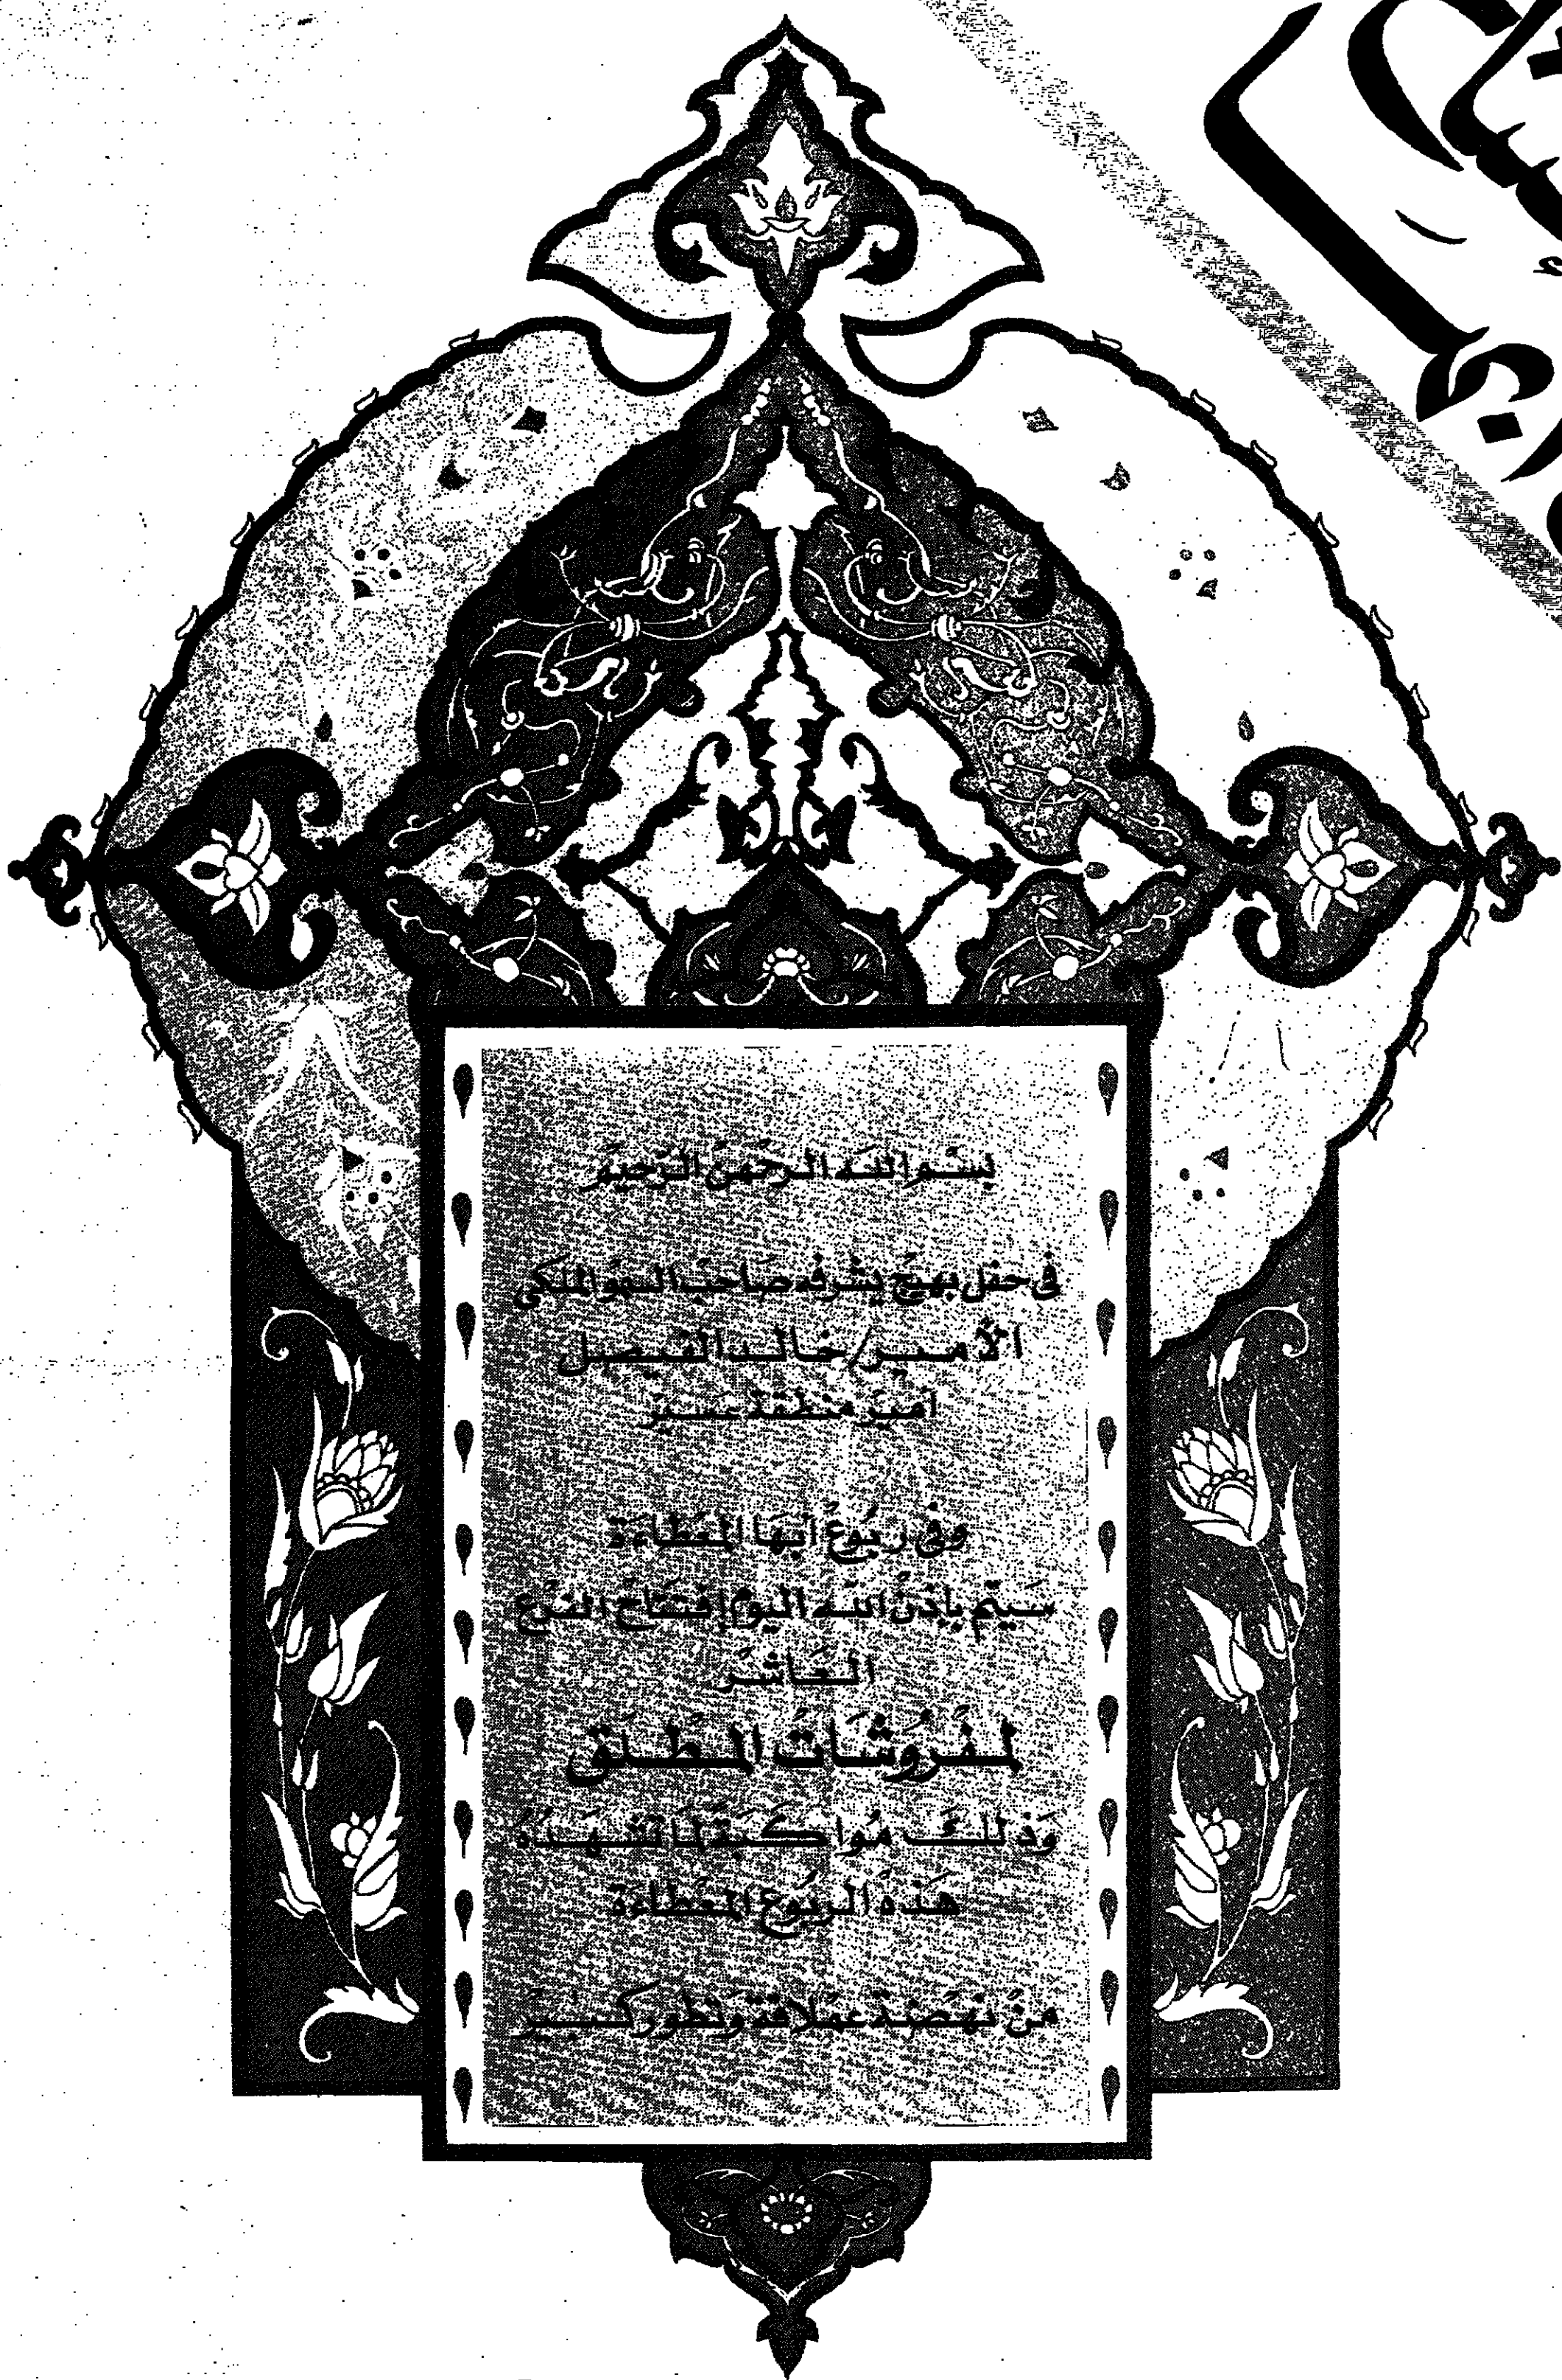 بسم الله الرحمن الرحيم
في حفل بهيج يشرفه صاحب السمو الملكي
الأمير/خالد الفيصل
أمير منطقة عسير
وفي ربوع أبها المعطاءة
سيتم بإذن الله اليوم إفتتاح الفرع
العاشر
لمفروشات المطلق
وذلك مواكبة لما تشهده
هذه الربوع المعطاءة
من نهضة عملاقة وتطور كبير